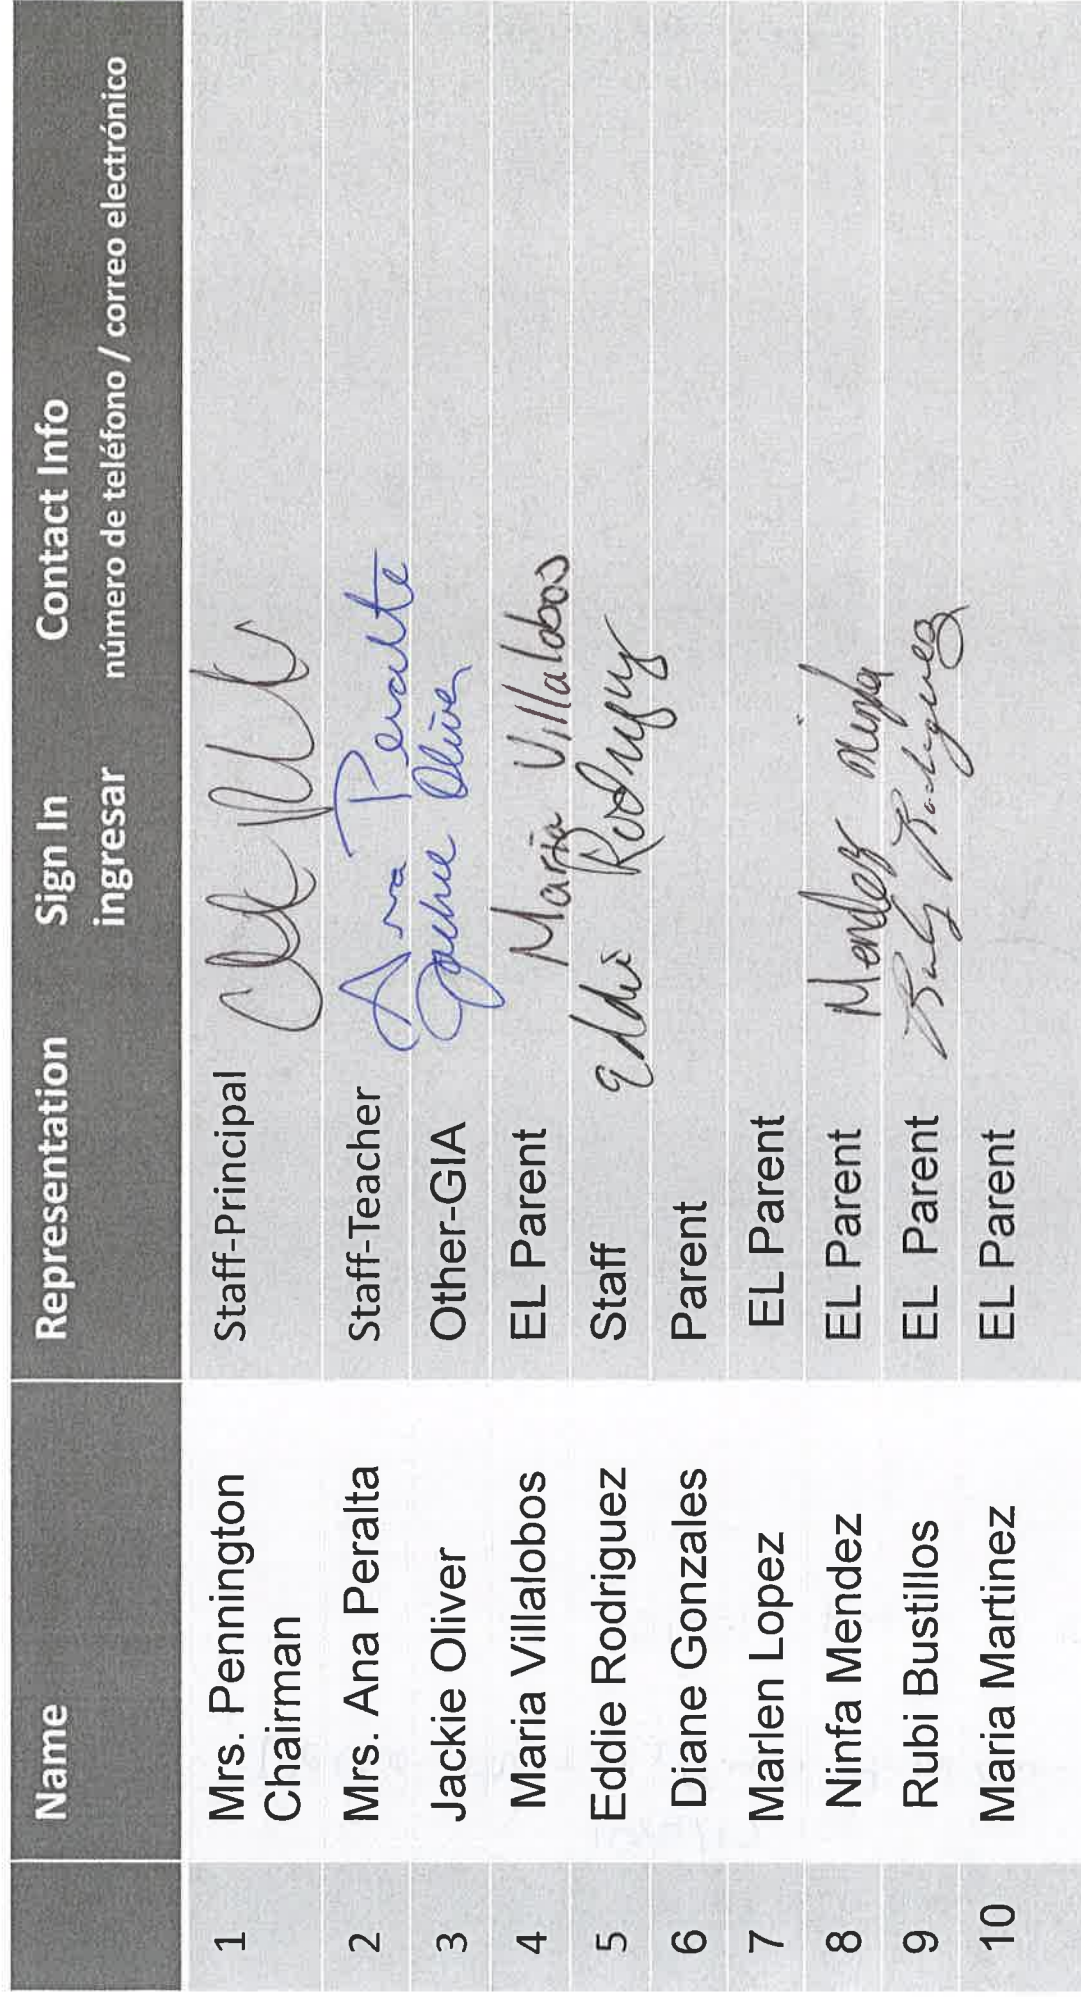 Name Representation Sign In Contact Info
ingresar número de teléfono / correo electrónico
1 Mrs. Pennington Staff-Principal
Chairman
2 Mrs. Ana Peralta Staff-Teacher Ana Peralta
3 Jackie Oliver Other-GIA Jackie Oliver
4 Maria Villalobos EL Parent Maria Villalobos
5 Eddie Rodriguez Staff Eddie Rodriguez
6 Diane Gonzales Parent
7 Marlen Lopez EL Parent
8 Ninfa Mendez EL Parent Mendez Ninfa
9 Rubi Bustillos EL Parent Rodriguez
10 Maria Martinez EL Parent